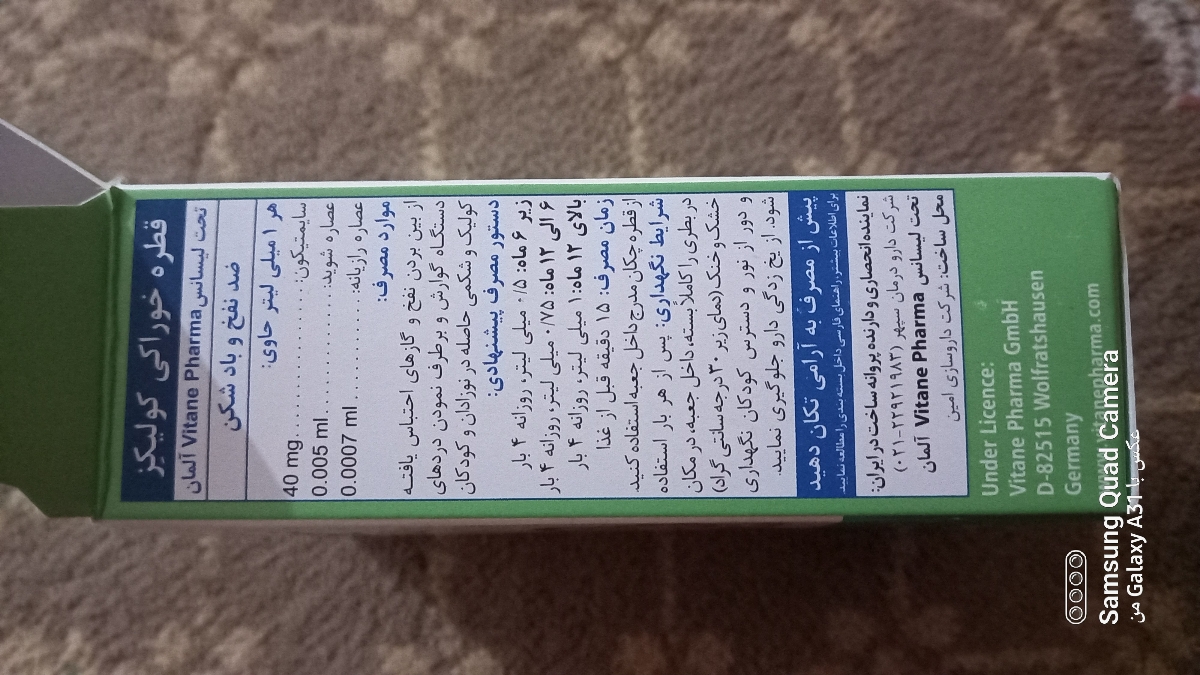 قطره خوراکی کولیکز
تحت لیسانس Vitane Pharma آلمان
ضد نفخ و باد شکن
هر ۱ میلی لیتر حاوی:
سایمتیکون: .......... 40 mg
عصاره شوید: .......... 0.005 ml
عصاره رازیانه: .......... 0.0007 ml
موارد مصرف:
از بین بردن نفخ و گازهای احتباس یافته
دستگاه گوارش و برطرف نمودن دردهای
کولیک و شکمی حاصله در نوزادان و کودکان
دستور مصرف پیشنهادی:
زیر ۶ ماه: ۰/۵ میلی لیتر، روزانه ۴ بار
۶ الی ۱۲ ماه: ۰/۷۵ میلی لیتر، روزانه ۴ بار
بالای ۱۲ ماه: ۱ میلی لیتر، روزانه ۴ بار
زمان مصرف: ۱۵ دقیقه قبل از غذا
از قطره چکان مدرج داخل جعبه استفاده کنید.
شرایط نگهداری: پس از هر بار استفاده
در بطری را کاملاً بسته، داخل جعبه، در مکان
خشک و خنک (دمای زیر ۳۰ درجه سانتی گراد)
و دور از نور و دسترس کودکان نگهداری
شود. از یخ زدگی دارو جلوگیری نمایید.
پیش از مصرف به آرامی تکان دهید
برای اطلاعات بیشتر، راهنمای فارسی داخل بسته بندی را مطالعه نمایید
نماینده انحصاری و دارنده پروانه ساخت در ایران:
شرکت دارو درمان سپهر (۲۲۹۲۱۹۸۳-۰۲۱)
تحت لیسانس Vitane Pharma آلمان
محل ساخت: شرکت داروسازی امین
Under Licence:
Vitane Pharma GmbH
D-82515 Wolfratshausen
Germany
Samsung Quad Camera
عکس با Galaxy A31 من